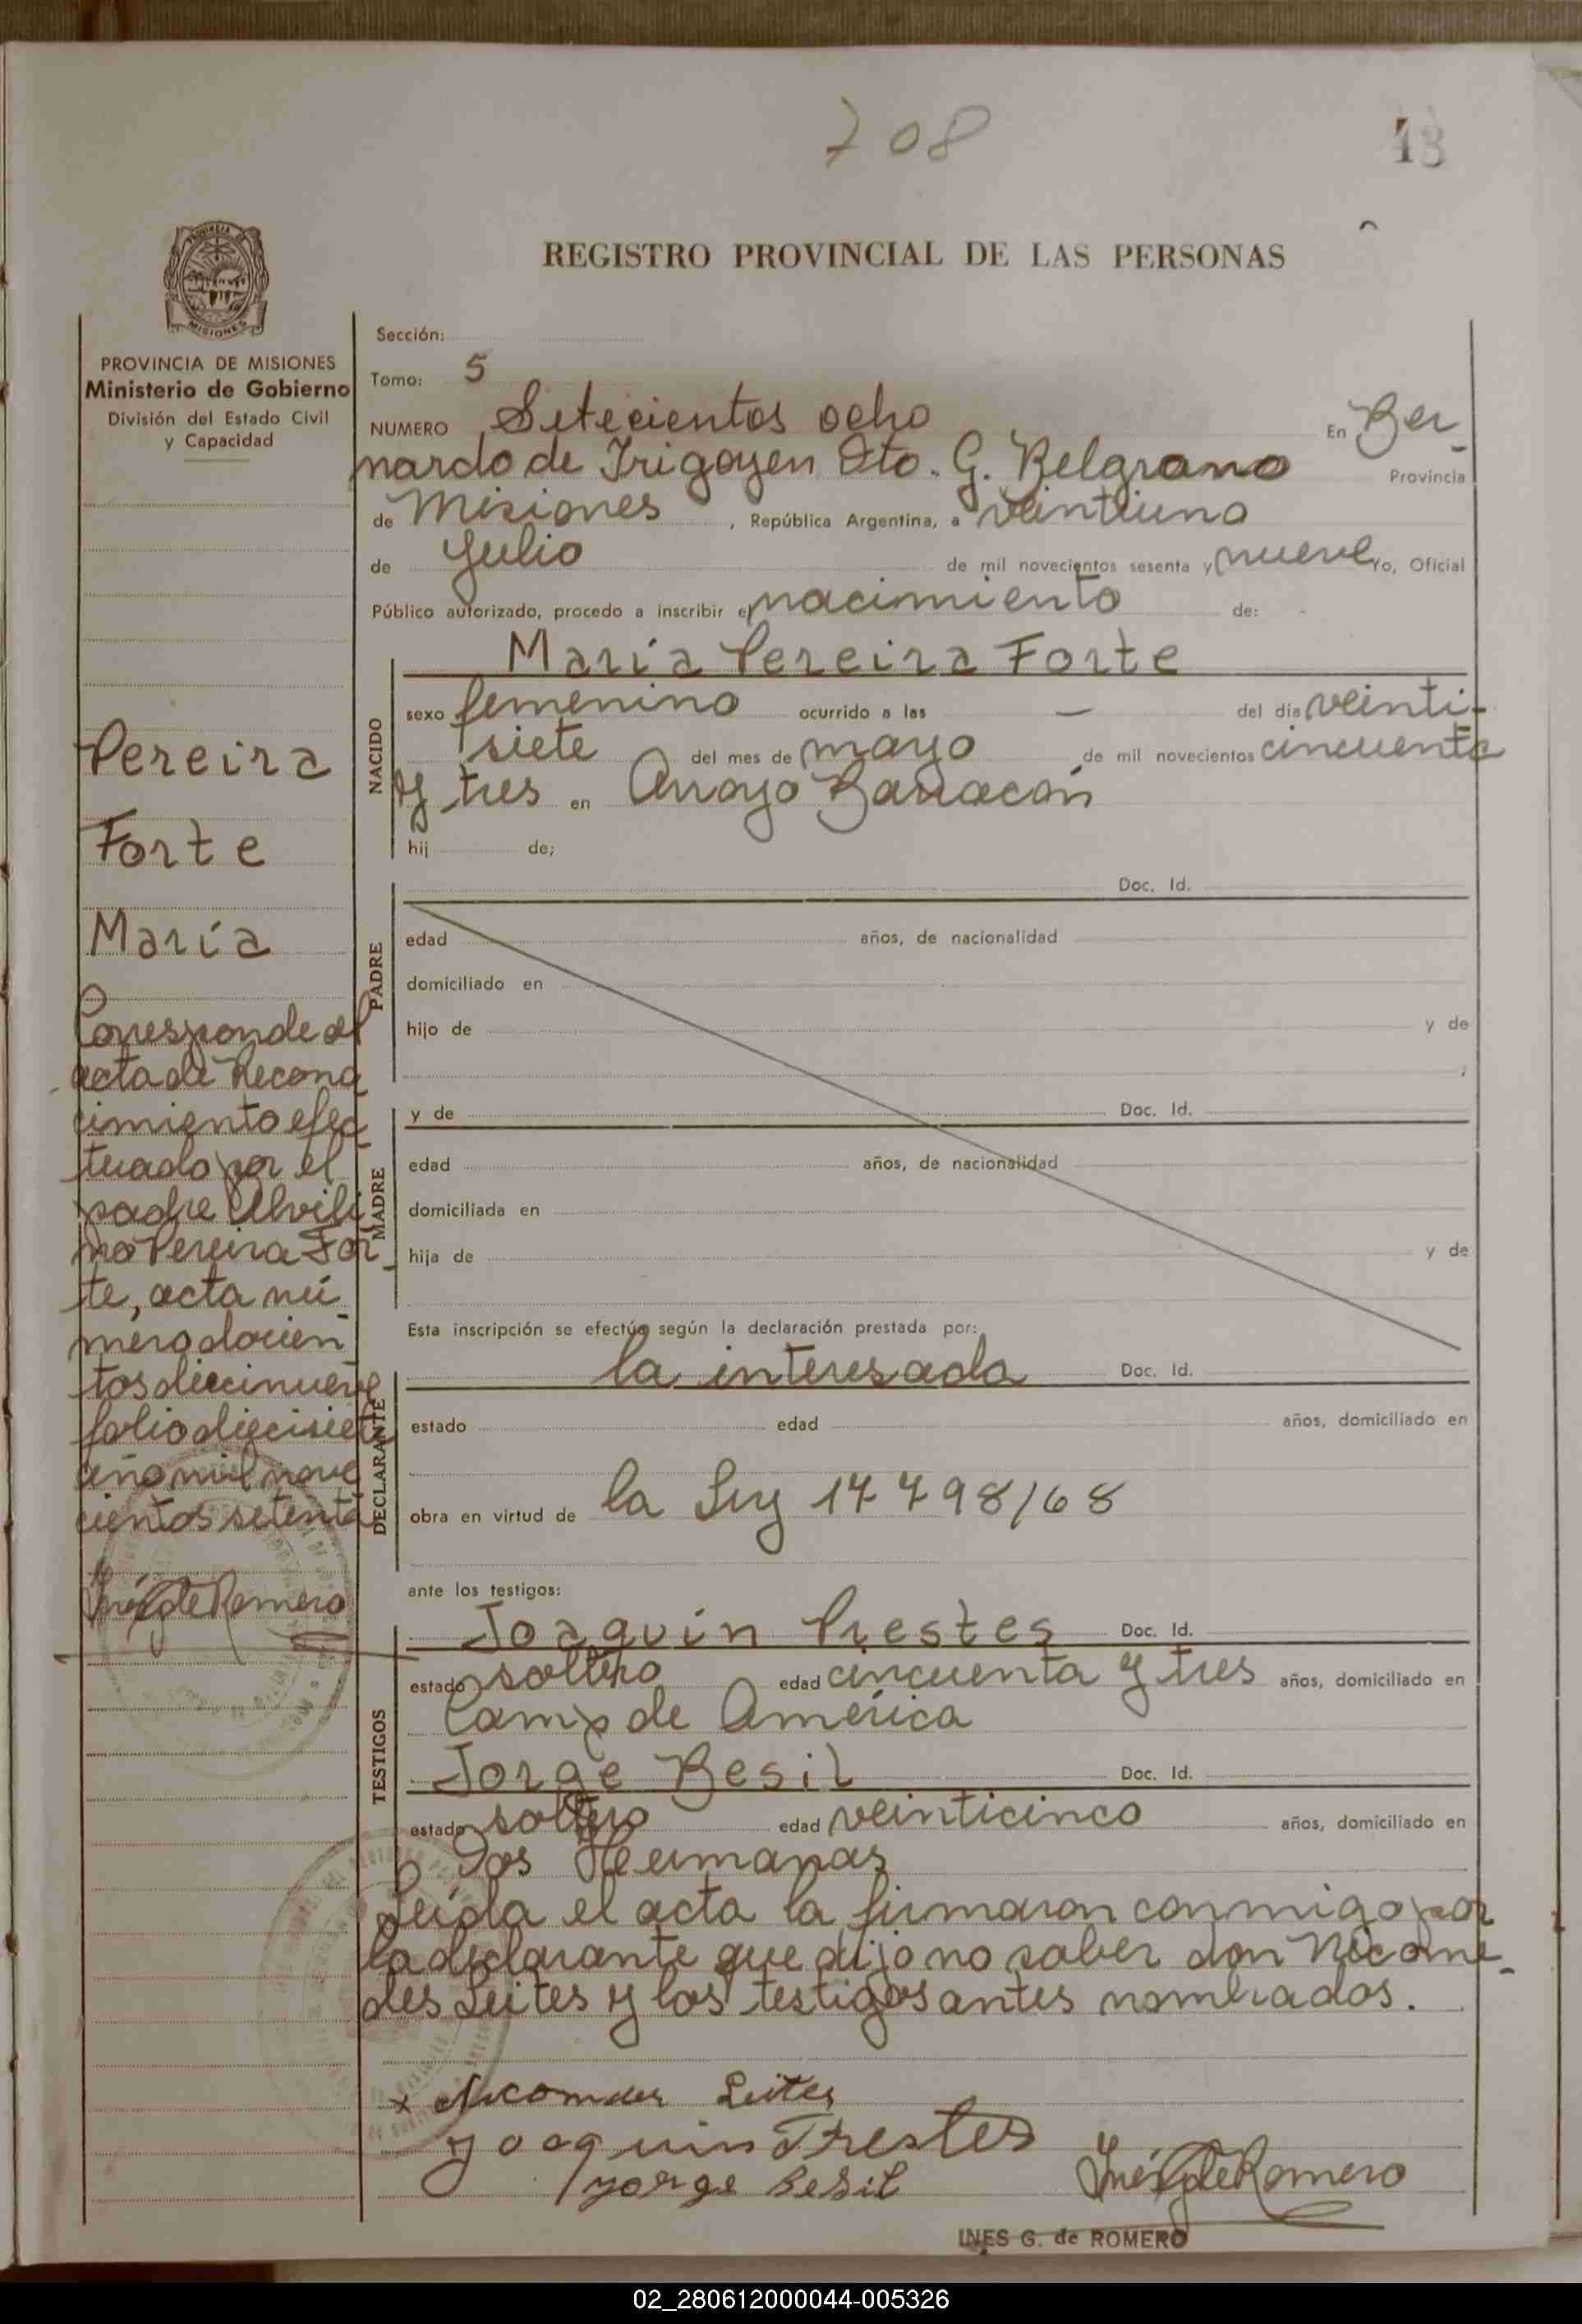 708
13
REGISTRO PROVINCIAL DE LAS PERSONAS
MISIONES
PROVINCIA DE MISIONES
Ministerio de Gobierno
División del Estado Civil
y Capacidad
Sección:
Tomo: 5
NUMERO Setecientos ocho En Ber-
nardo de Irigoyen Dto. G. Belgrano Provincia
de Misiones, República Argentina, a veintiuno
de Julio de mil novecientos sesenta y nueve Yo, Oficial
Público autorizado, procedo a inscribir el nacimiento de:
María Pereira Forte
NACIDO
sexo femenino ocurrido a las — del día veinti-
siete del mes de mayo de mil novecientos cincuenta
y tres en Arroyo Barracón
hij de;
Pereira
Forte
María
Corresponde al
acta de Recono
cimiento efec
tuado por el
padre Alvili
no Pereira For
te, acta nú
mero docien
tos diecinueve
folio diecisiete
año mil nove
cientos setenta
Inés G de Romero
PADRE
Doc. Id.
edad años, de nacionalidad
domiciliado en
hijo de y de
;
MADRE
y de Doc. Id.
edad años, de nacionalidad
domiciliada en
hija de y de
Esta inscripción se efectúa según la declaración prestada por:
DECLARANTE
la interesada Doc. Id.
estado edad años, domiciliado en
obra en virtud de la Ley 17798/68
ante los testigos:
TESTIGOS
Joaquín Prestes Doc. Id.
estado soltero edad cincuenta y tres años, domiciliado en
Camp de América
Jorge Besil Doc. Id.
estado soltero edad veinticinco años, domiciliado en
Dos Hermanas
Leída el acta la firmaron conmigo por
la declarante que dijo no saber don Nicome-
des Leites y los testigos antes nombrados.
x Nicomdes Leites
Joaquin Prestes
Jorge Besil
Inés G de Romero
INES G. de ROMERO
02_280612000044-005326